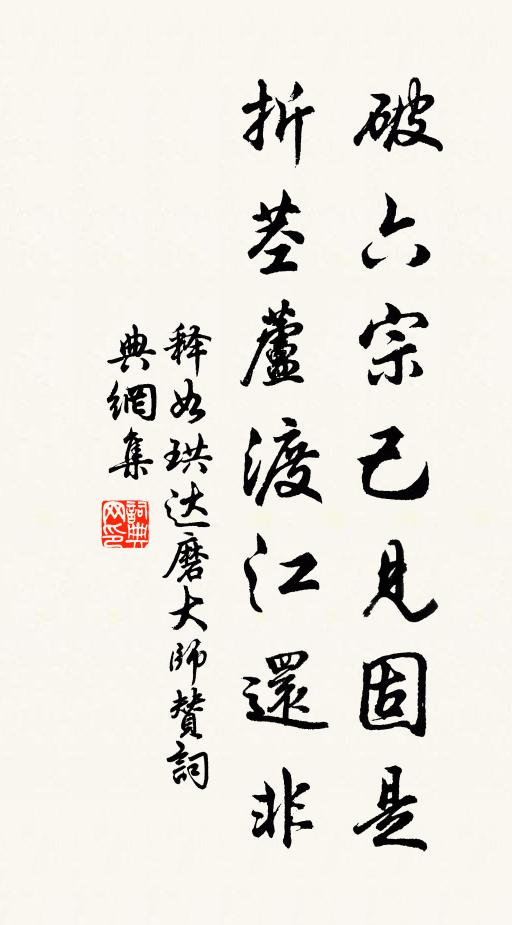 破六宗已見固是
折莖蘆渡江還非
释如珙达磨大師賛詞
典網集
詞典网印